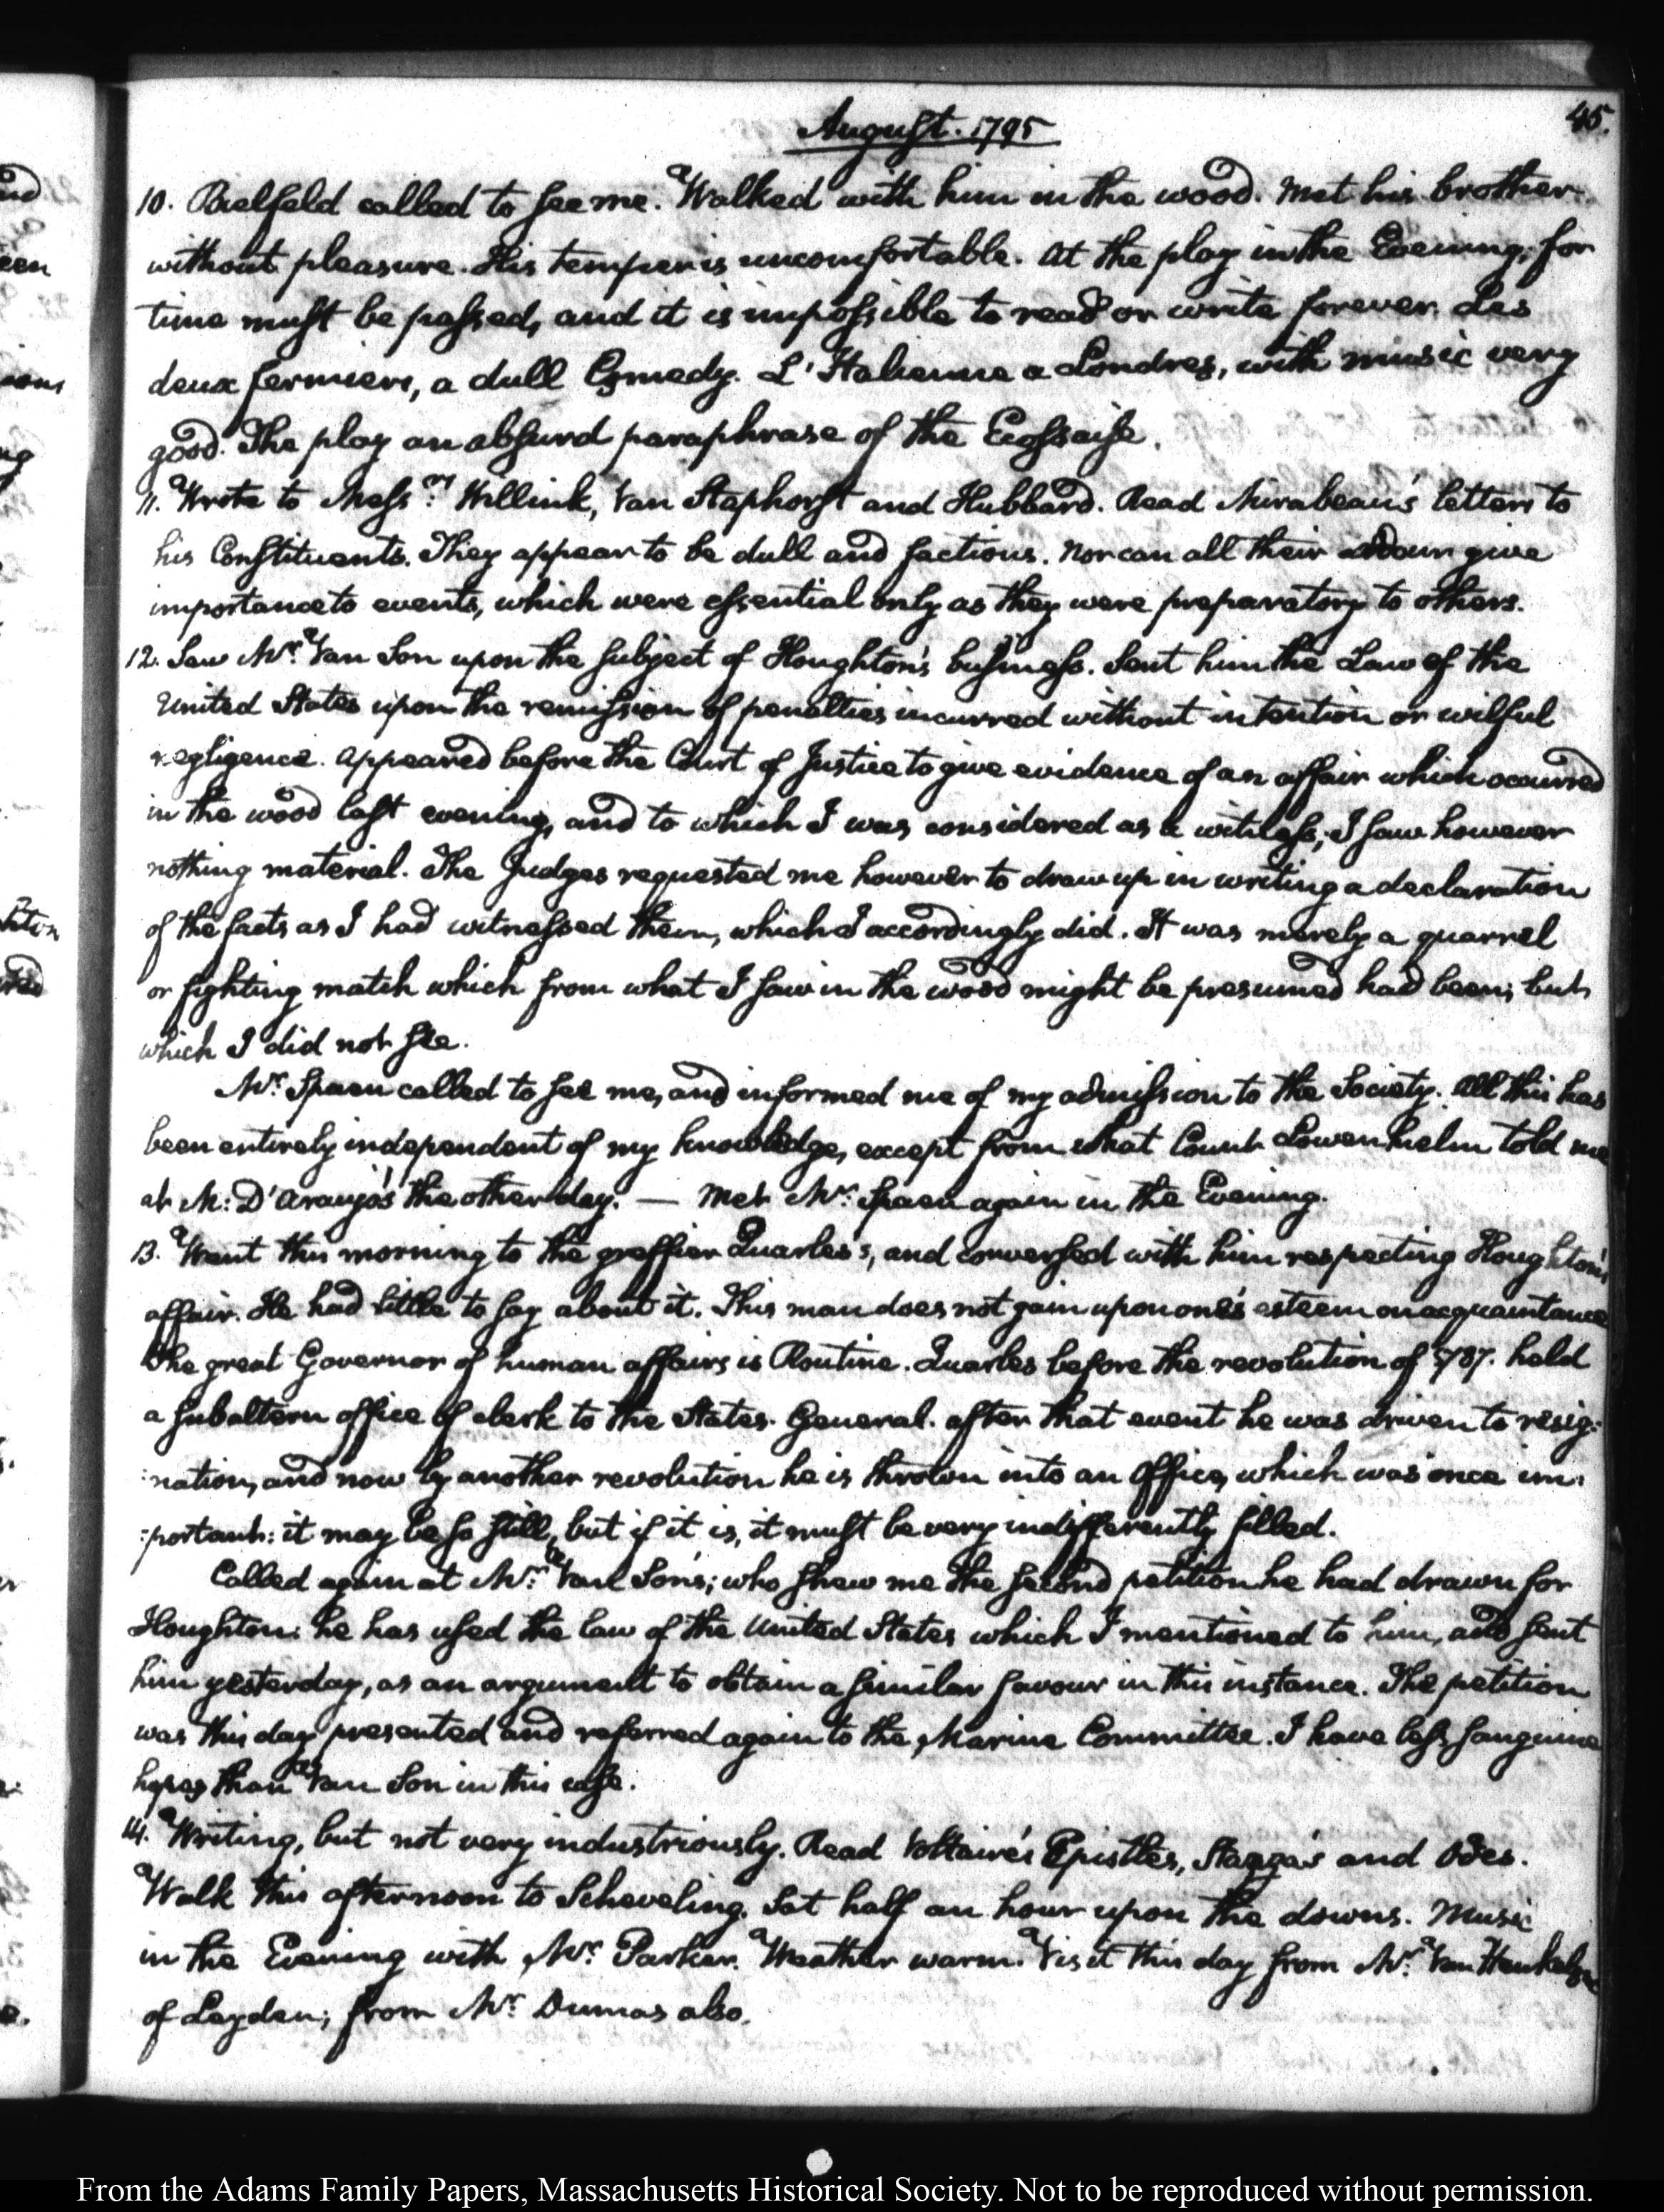 45.
August. 1795
10. Bielfeld called to see me. Walked with him in the wood. Met his brother
without pleasure. His temper is uncomfortable. At the play in the Evening; for
time must be passed, and it is impossible to read or write forever. Les
deux fermiers, a dull Comedy. L'Italienne a Londres, with music very
good. The play an absurd paraphrase of the Ecossaise.
11. Wrote to Mess:rs Willink, Van Staphorst and Hubbard. Read Mirabeau's letters to
his Constituents. They appear to be dull and factious. Nor can all their give
importance to events, which were essential only as they were preparatory to others.
12. Saw Mr: Van Son upon the subject of Houghton's business. Sent him the Law of the
United States upon the remission of penalties incurred without intention or wilful
negligence. Appeared before the Court of Justice to give evidence of an affair which occurred
in the wood last evening, and to which I was considered as a witness; I saw however
nothing material. The Judges requested me however to draw up in writing a declaration
of the facts as I had witnessed them, which I accordingly did. It was merely a quarrel
or fighting match which from what I saw in the wood might be presumed had been; but
which I did not see.
Mr: Spaen called to see me, and informed me of my admission to the Society. All this has
been entirely independent of my knowledge, except from what Count Lowenhielm told me
at M: D'Araujo's the other day. — Met Mr: Spaen again in the Evening.
13. Went this morning to the greffier Quarles's, and conversed with him respecting Houghton's
affair. He had little to say about it. This man does not gain upon one's esteem on acquaintance
The great Governor of human affairs is Routine. Quarles before the revolution of 1787. held
a subaltern office of clerk to the States. General. after that event he was driven to resig:
:nation, and now by another revolution he is thrown into an Office, which was once im:
:portant: it may be so still, but if it is, it must be very indifferently filled.
Called again at Mr: Van Son's; who shew me the second petition he had drawn for
Houghton: he has used the law of the United States which I mentioned to him, and sent
him yesterday, as an argument to obtain a similar favour in this instance. The petition
was this day presented and referred again to the Marine Committee. I have less sanguine
hopes than Van Son in this case.
14. Writing, but not very industriously. Read Voltaire's Epistles, Stanza's and Odes.
Walk this afternoon to Scheveling. Sat half an hour upon the downs. Music
in the Evening with Mr: Parker. Weather warm. Visit this day from Mr: Van
of Leyden; from Mr: Dumas also.
From the Adams Family Papers, Massachusetts Historical Society. Not to be reproduced without permission.